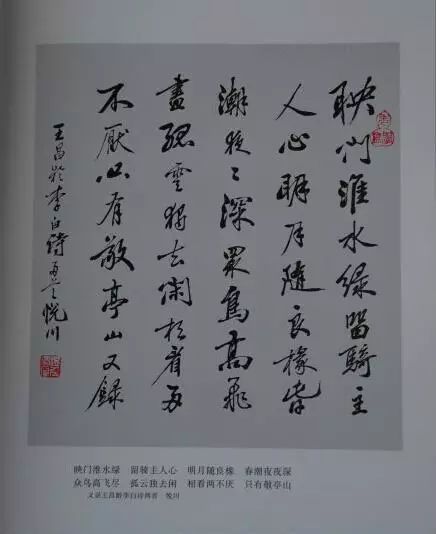 映門淮水绿留騎主
人心明月隨良椽春
潮夜々深眾鳥高飛
盡孤雲獨去闲相看两
不厭只有敬亭山又録
王昌龄李白詩两首 悦川
映门淮水绿 留骑主人心 明月随良椽 春潮夜夜深
众鸟高飞尽 孤云独去闲 相看两不厌 只有敬亭山
又录王昌龄李白诗两首 悦川